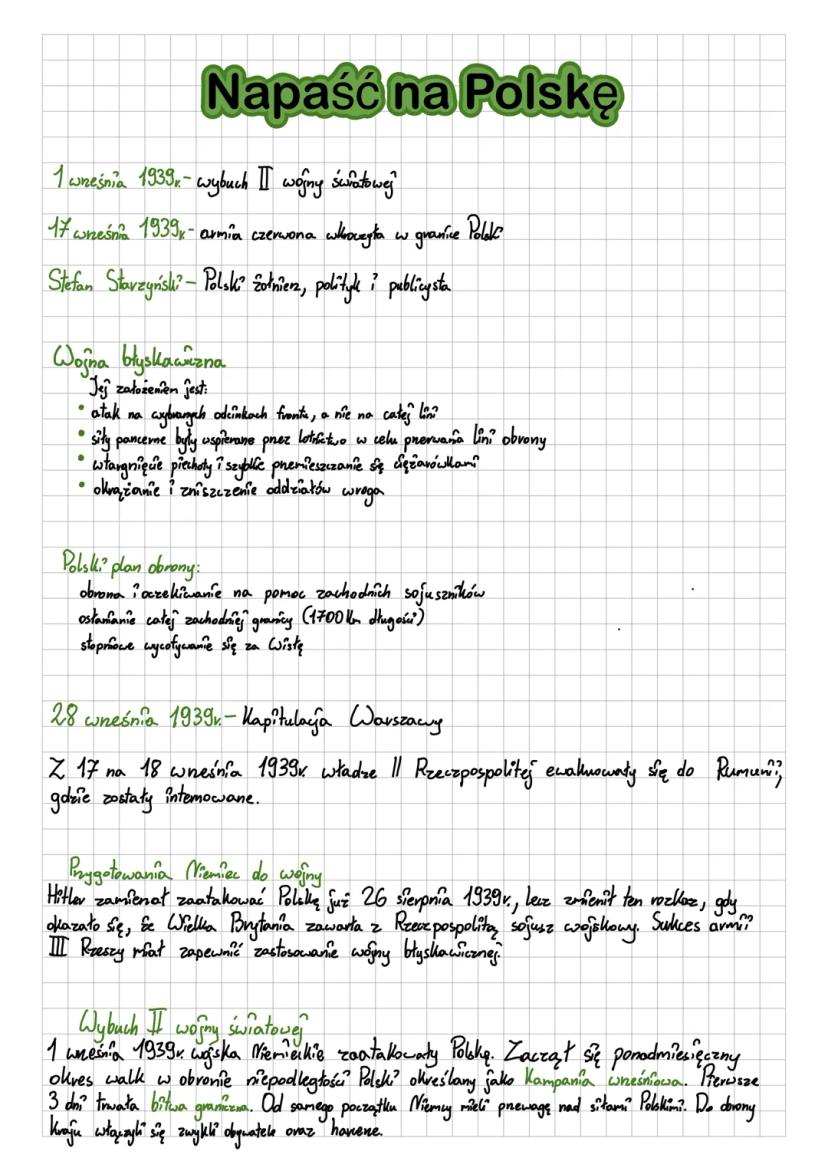 Napaść na Polskę
1 września 1939r. - wybuch II wojny światowej
17 września 1939r - armia czerwona wkroczyła w granice Polski
Stefan Starzyński - Polski żołnierz, polityk i publicysta
Wojna błyskawiczna
Jej założeniem jest:
• atak na wybranych odcinkach frontu, a nie na całej lini
• siły pancerne były wspierane przez lotnictwo w celu przerwania lini obrony
• wtargnięcie piechoty i szybkie przemieszczanie się ciężarówkami
• okrążanie i zniszczenie oddziałów wroga
Polski plan obrony:
obrona i oczekiwanie na pomoc zachodnich sojuszników
osłanianie całej zachodniej granicy (1700 km długości)
stopniowe wycofywanie się za Wisłę
28 września 1939r. - Kapitulacja Warszawy
Z 17 na 18 września 1939r. władze II Rzeczpospolitej ewakuowały się do Rumunii,
gdzie zostały internowane.
Przygotowania Niemiec do wojny
Hitler zamierzał zaatakować Polskę już 26 sierpnia 1939r., lecz zmienił ten rozkaz, gdy
okazało się, że Wielka Brytania zawarła z Rzeczpospolitą sojusz wojskowy. Sukces armii
III Rzeszy miał zapewnić zastosowanie wojny błyskawicznej.
Wybuch II wojny światowej
1 września 1939r. wojska Niemieckie zaatakowały Polskę. Zaczął się ponadmiesięczny
okres walk w obronie niepodległości Polski określany jako Kampania wrześniowa. Pierwsze
3 dni trwała bitwa graniczna. Od samego początku Niemcy mieli przewagę nad siłami Polskimi. Do obrony
kraju włączyli się zwykli obywatele oraz harcerze.